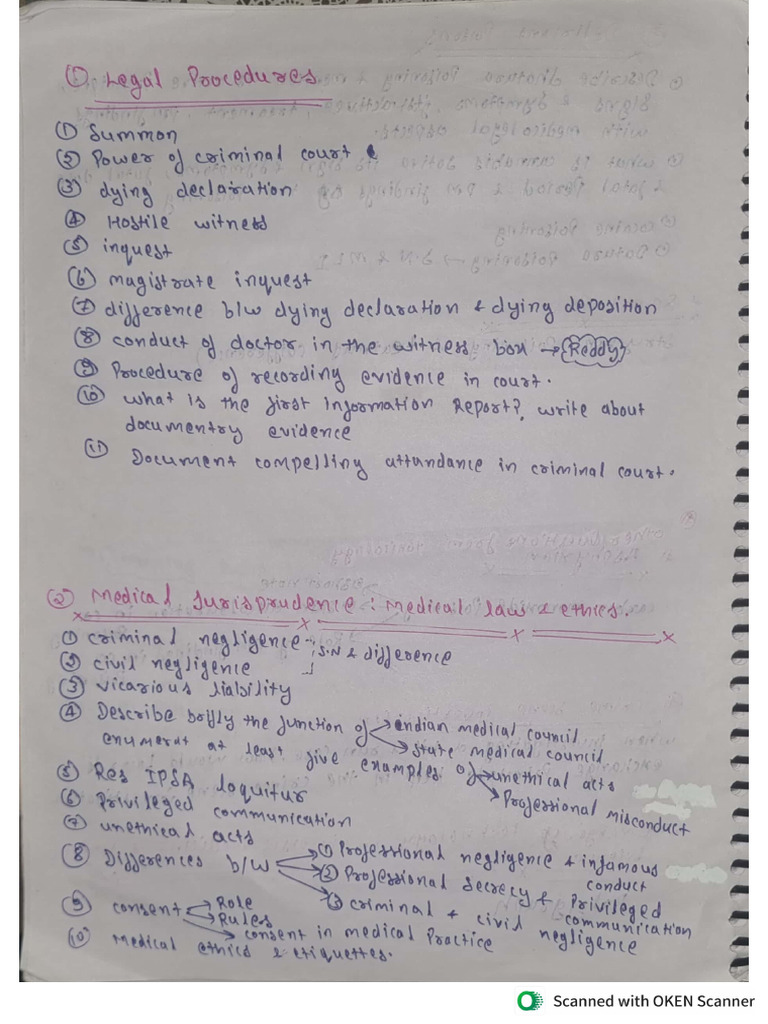 ① Legal Procedures
① Summon
② Power of criminal court
③ dying declaration
④ Hostile witness
⑤ inquest
⑥ magistrate inquest
⑦ difference b/w dying declaration & dying deposition
⑧ conduct of doctor in the witness box → Reddy
⑨ Procedure of recording evidence in court.
⑩ what is the first information Report?, write about
documentry evidence
⑪ Document compelling attandance in criminal court.
② Medical Jurisprudence : medical law & ethics.
① criminal negligence
② civil negligence
S.N & difference
③ vicarious liability
④ Describe brifly the function of → indian medical council
→ state medical council
enumerat at least five examples of → unethical acts
→ Professional misconduct
⑤ Res IPSA loquitur
⑥ Privileged communication
⑦ unethical acts
⑧ Differences b/w → ① Professional negligence & infamous
conduct
→ ② Professional secrecy & Privileged
communication
→ ③ criminal & civil negligence
⑨ consent → Role
→ Rules
→ consent in medical Practice
⑩ medical ethics & etiquettes.
Scanned with OKEN Scanner